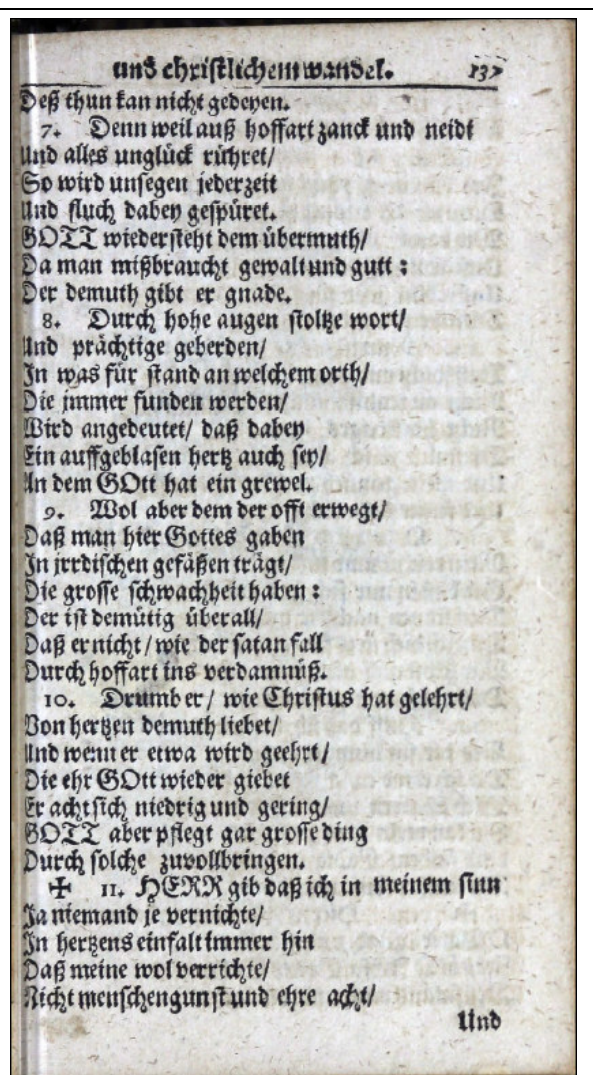 und christlichem wandel. 137
Deß thun kan nicht gedeyen.
7. Denn weil auß hoffart zanck und neidt
Und alles unglück rühret/
So wird unsegen jederzeit
Und fluch dabey gespüret.
GOTT wiedersteht dem übermuth/
Da man mißbraucht gewalt und gutt:
Der demuth gibt er gnade.
8. Durch hohe augen stoltze wort/
Und prächtige geberden/
In was für stand an welchem orth/
Die jmmer funden werden/
Wird angedeutet/ daß dabey
Ein auffgeblasen hertz auch sey/
An dem GOtt hat ein grewel.
9. Wol aber dem der offt erwegt/
Daß man hier Gottes gaben
In jrrdischen gefäßen trägt/
Die grosse schwachheit haben:
Der ist demütig überall/
Daß er nicht/ wie der satan fall
Durch hoffart ins verdamnüß.
10. Drumb er/ wie Christus hat gelehrt/
Von hertzen demuth liebet/
Und wenn er etwa wird geehrt/
Die ehr GOtt wieder giebet
Er acht sich niedrig und gering/
GOTT aber pflegt gar grosse ding
Durch solche zuvollbringen.
✠ 11. HERR gib daß ich in meinem sinn
Ja niemand je vernichte/
In hertzens einfalt immer hin
Daß meine wol verrichte/
Nicht menschengunst und ehre acht/
Und